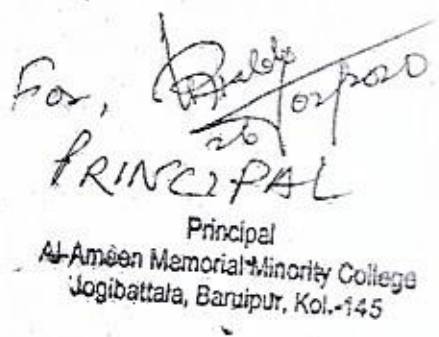 For,
26/02/2020
PRINCIPAL
Principal
Al-Ameen Memorial Minority College
Jogibattala, Baruipur, Kol.-145